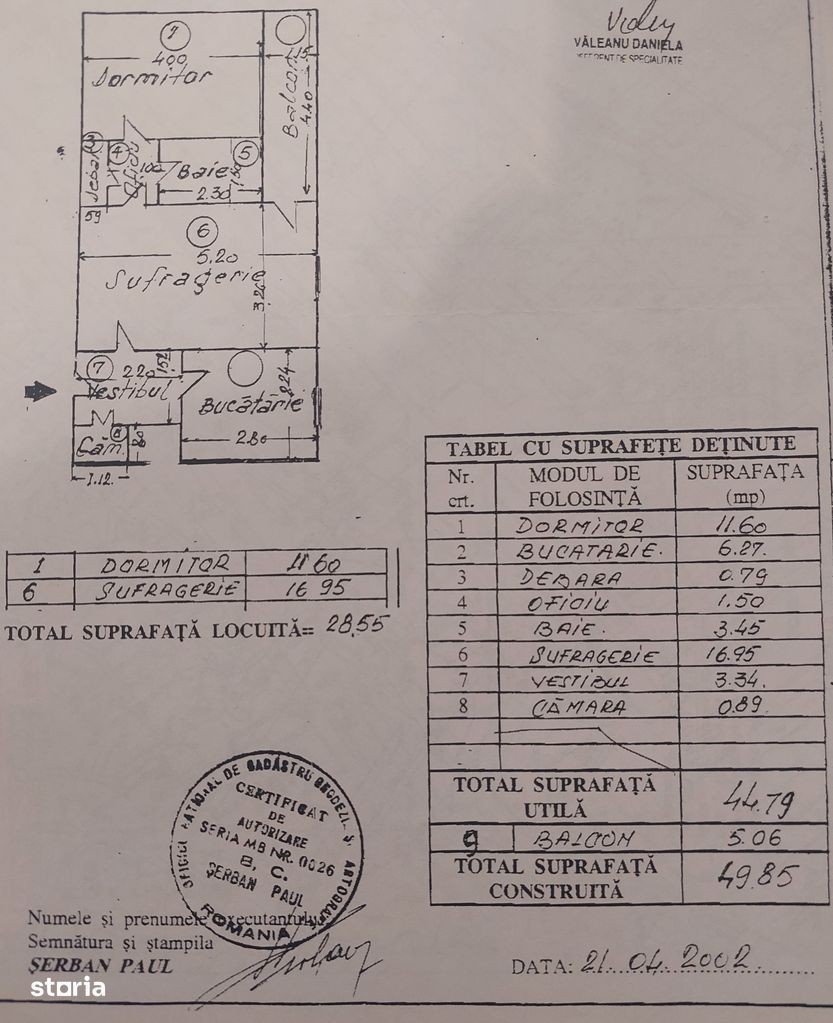 VĂLEANU DANIELA
REFERENT DE SPECIALITATE
1
400
Dormitor
1.15
Balcon
4.40
3
Debara
4
Oficiu
100
Baie
5
150
2.30
59
6
5.20
Sufragerie
3.26
7
220
152
Vestibul
2.24
Bucătărie
8
Căm.
80
2.80
1.12.
TABEL CU SUPRAFEȚE DEȚINUTE
Nr. crt. MODUL DE FOLOSINȚĂ SUPRAFAȚA (mp)
1 DORMITOR 11.60
2 BUCATARIE. 6.27.
3 DEBARA 0.79
4 OFICIU 1.50
5 BAIE. 3.45
6 SUFRAGERIE 16.95
7 VESTIBUL 3.34.
8 CĂMARA 0.89.
TOTAL SUPRAFAȚĂ UTILĂ 44.79
9 BALCON 5.06
TOTAL SUPRAFAȚĂ CONSTRUITĂ 49.85
1 DORMITOR 11 60
6 SUFRAGERIE 16 95
TOTAL SUPRAFAȚĂ LOCUITĂ= 28,55
CERTIFICAT
DE
AUTORIZARE
SERIA MB NR. 0026
B, C.
ȘERBAN PAUL
ROMANIA
Numele și prenumele executantului
Semnătura și ștampila
ȘERBAN PAUL
DATA: 21.04.2002
storia